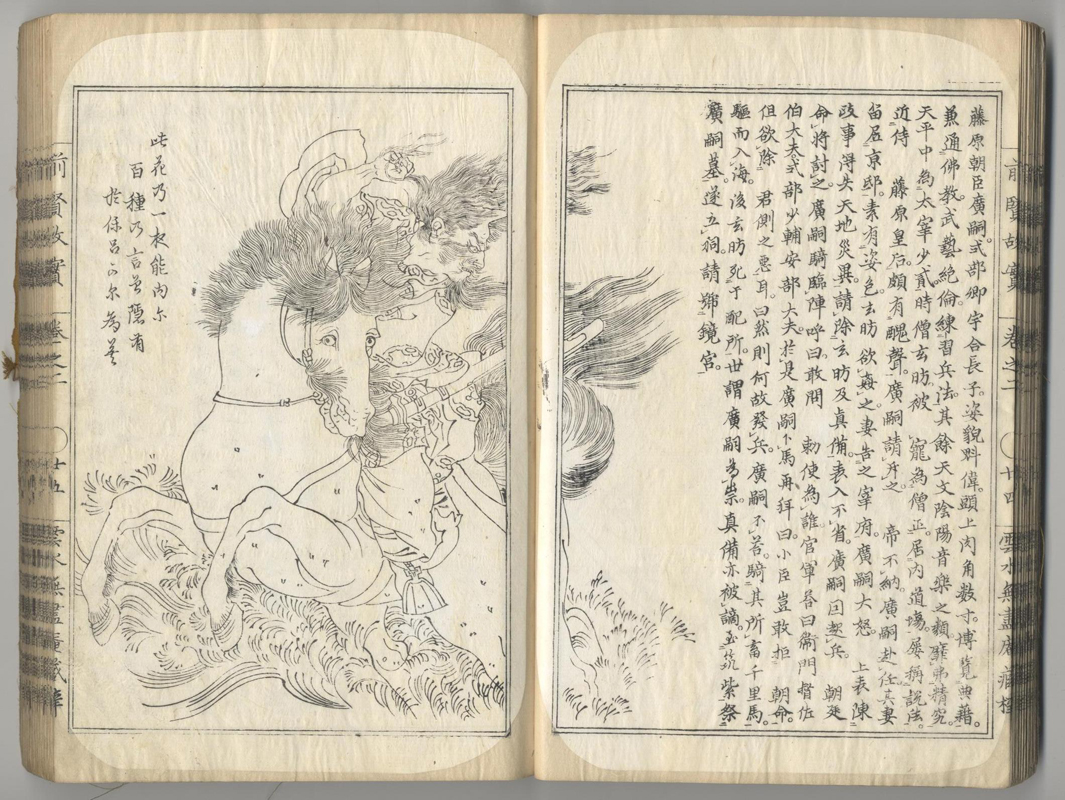 藤原朝臣廣嗣。式部卿宇合長子。姿貌魁偉。頭上肉角数寸。博覧典籍。
兼通佛教。武藝絶倫。練習兵法。其餘天文陰陽音樂之類。靡弗精究。
天平中為太宰少貳。時僧玄昉被 寵為僧正。居内道場。屡稱説法。
近侍 藤原皇后。頗有醜聲。廣嗣請斥之 帝不納。廣嗣赴任。其妻
留居京邸。素有姿色。玄昉欲姦之。妻告之宰府。廣嗣大怒。 上表陳
政事得失天地災異。請除玄昉及真備。表入不省。廣嗣回起兵。 朝廷
命將討之。廣嗣騎臨陣呼曰。敢問 勅使為誰。官軍答曰。衛門督佐
伯大夫。式部少輔安部大夫。於是廣嗣下馬再拜曰。小臣豈敢拒 朝命。
但欲除 君側之惡耳。曰然則何故發兵。廣嗣不答。騎其所畜千里馬。
驅而入海。後玄昉死于配所。世謂廣嗣為祟。真備亦被謫。至筑紫祭
廣嗣墓。遂立祠。請號鏡宮。
前賢故實 卷之二 〇 廿四 雲水無盡庵藏梓
此花乃一衣能内尓
百種乃言曽隠有
於保呂可尓為莫
前賢故實 卷之二 〇 廿五 雲水無盡庵藏梓